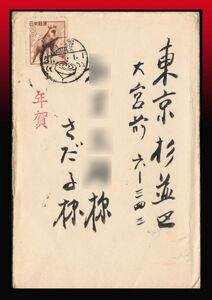 東京杉並区
大宮前六ー三四二
様
さだ子様
年賀
日本郵便